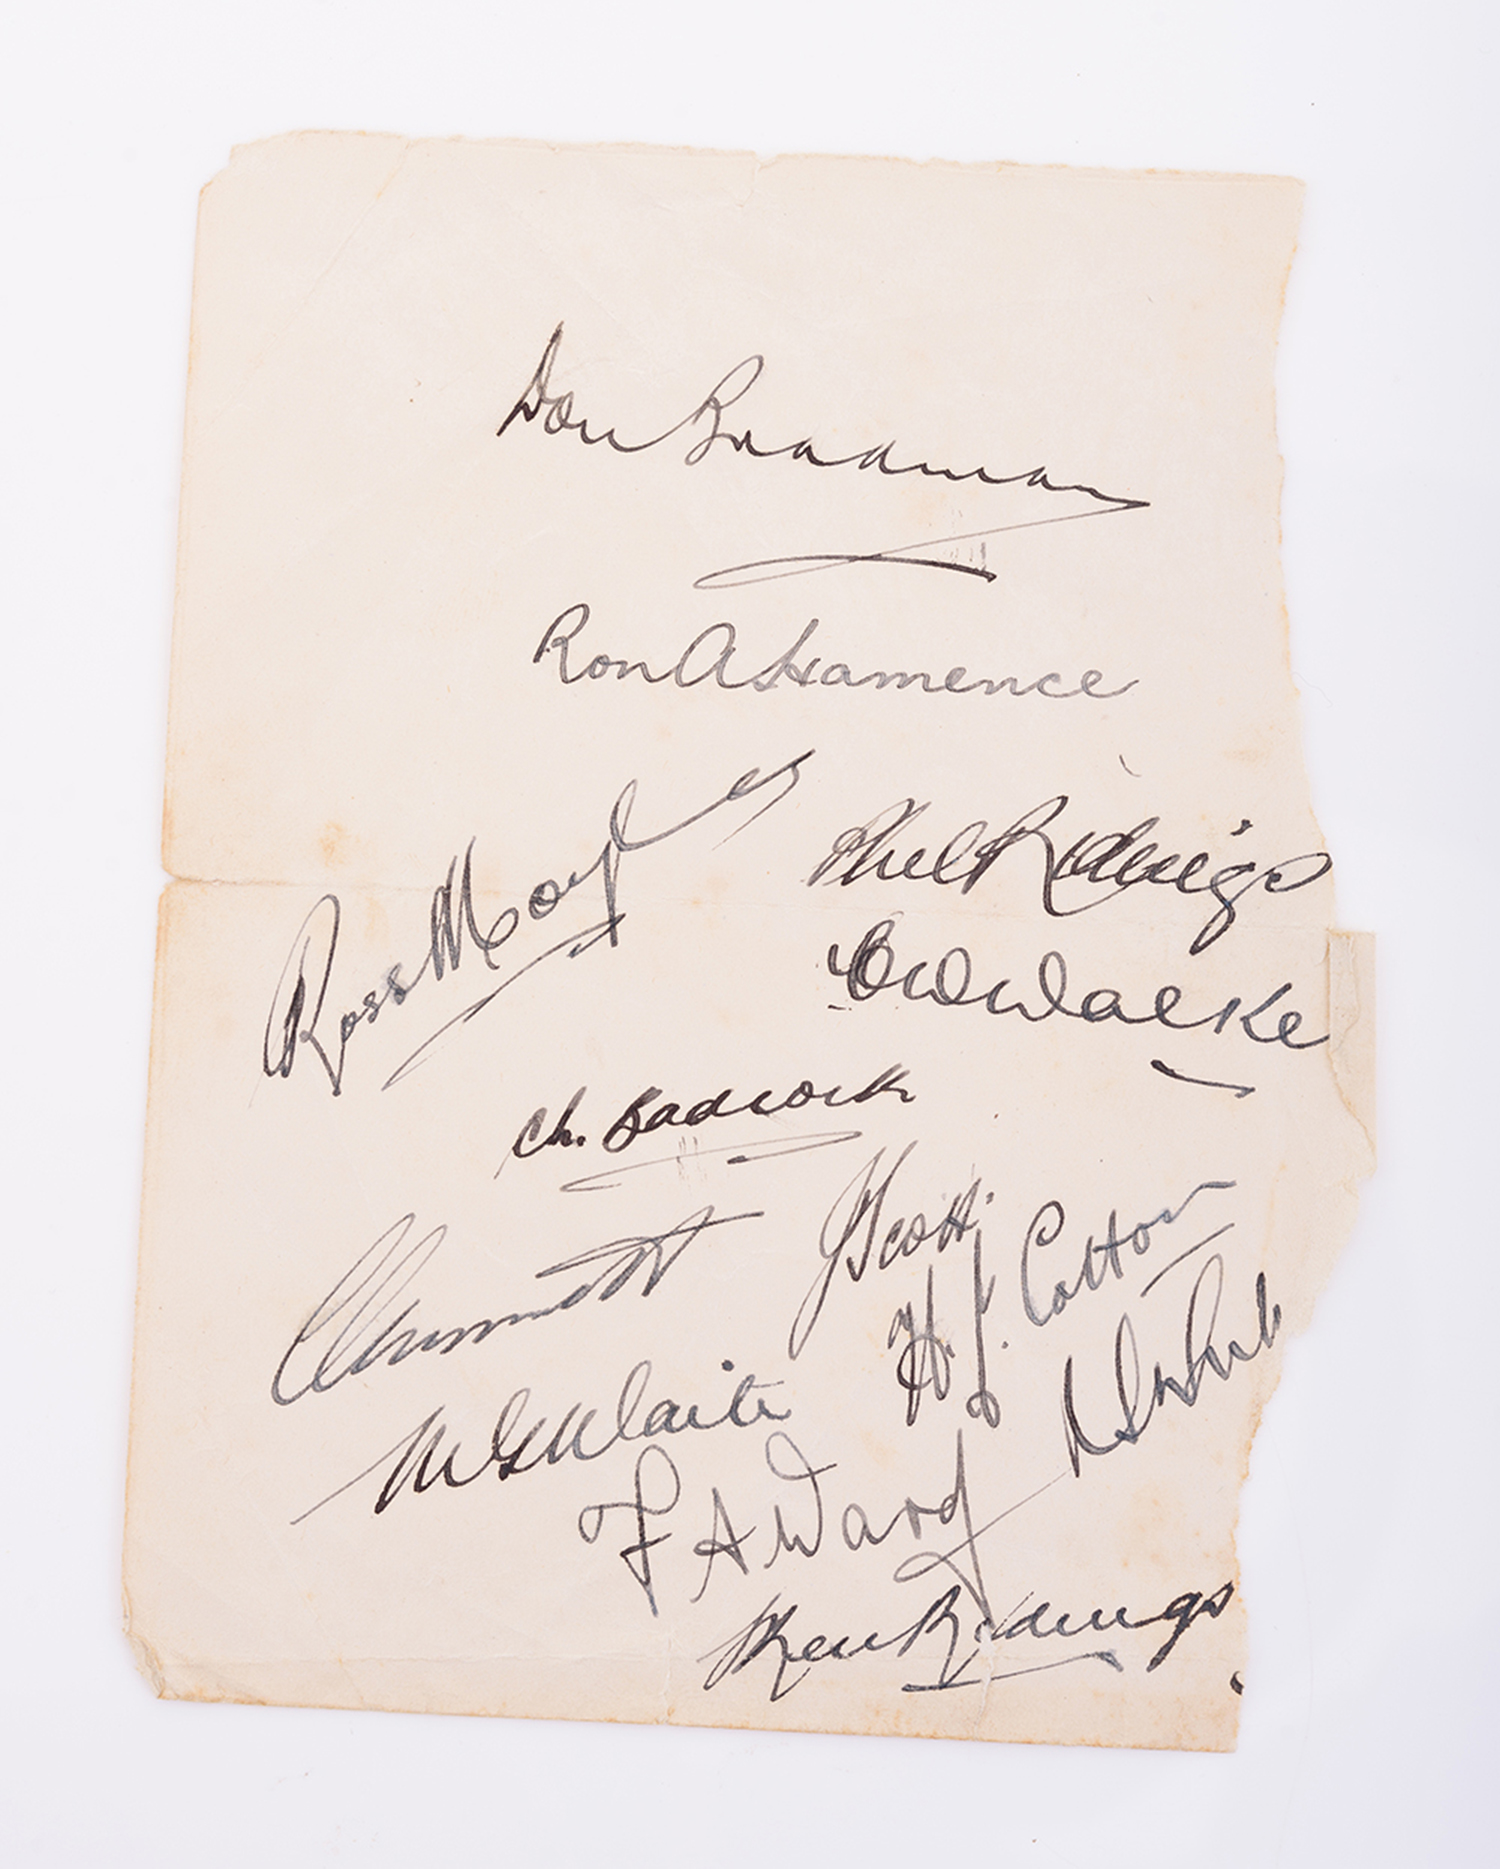 Don Bradman
Ron A Hamence
Ross Moyle
Phil Ridings
C W Walker
Ch. Badcock
J Scott
H. J. Cotton
C Grimmett
M G Waite
F A Ward
Ken Ridings